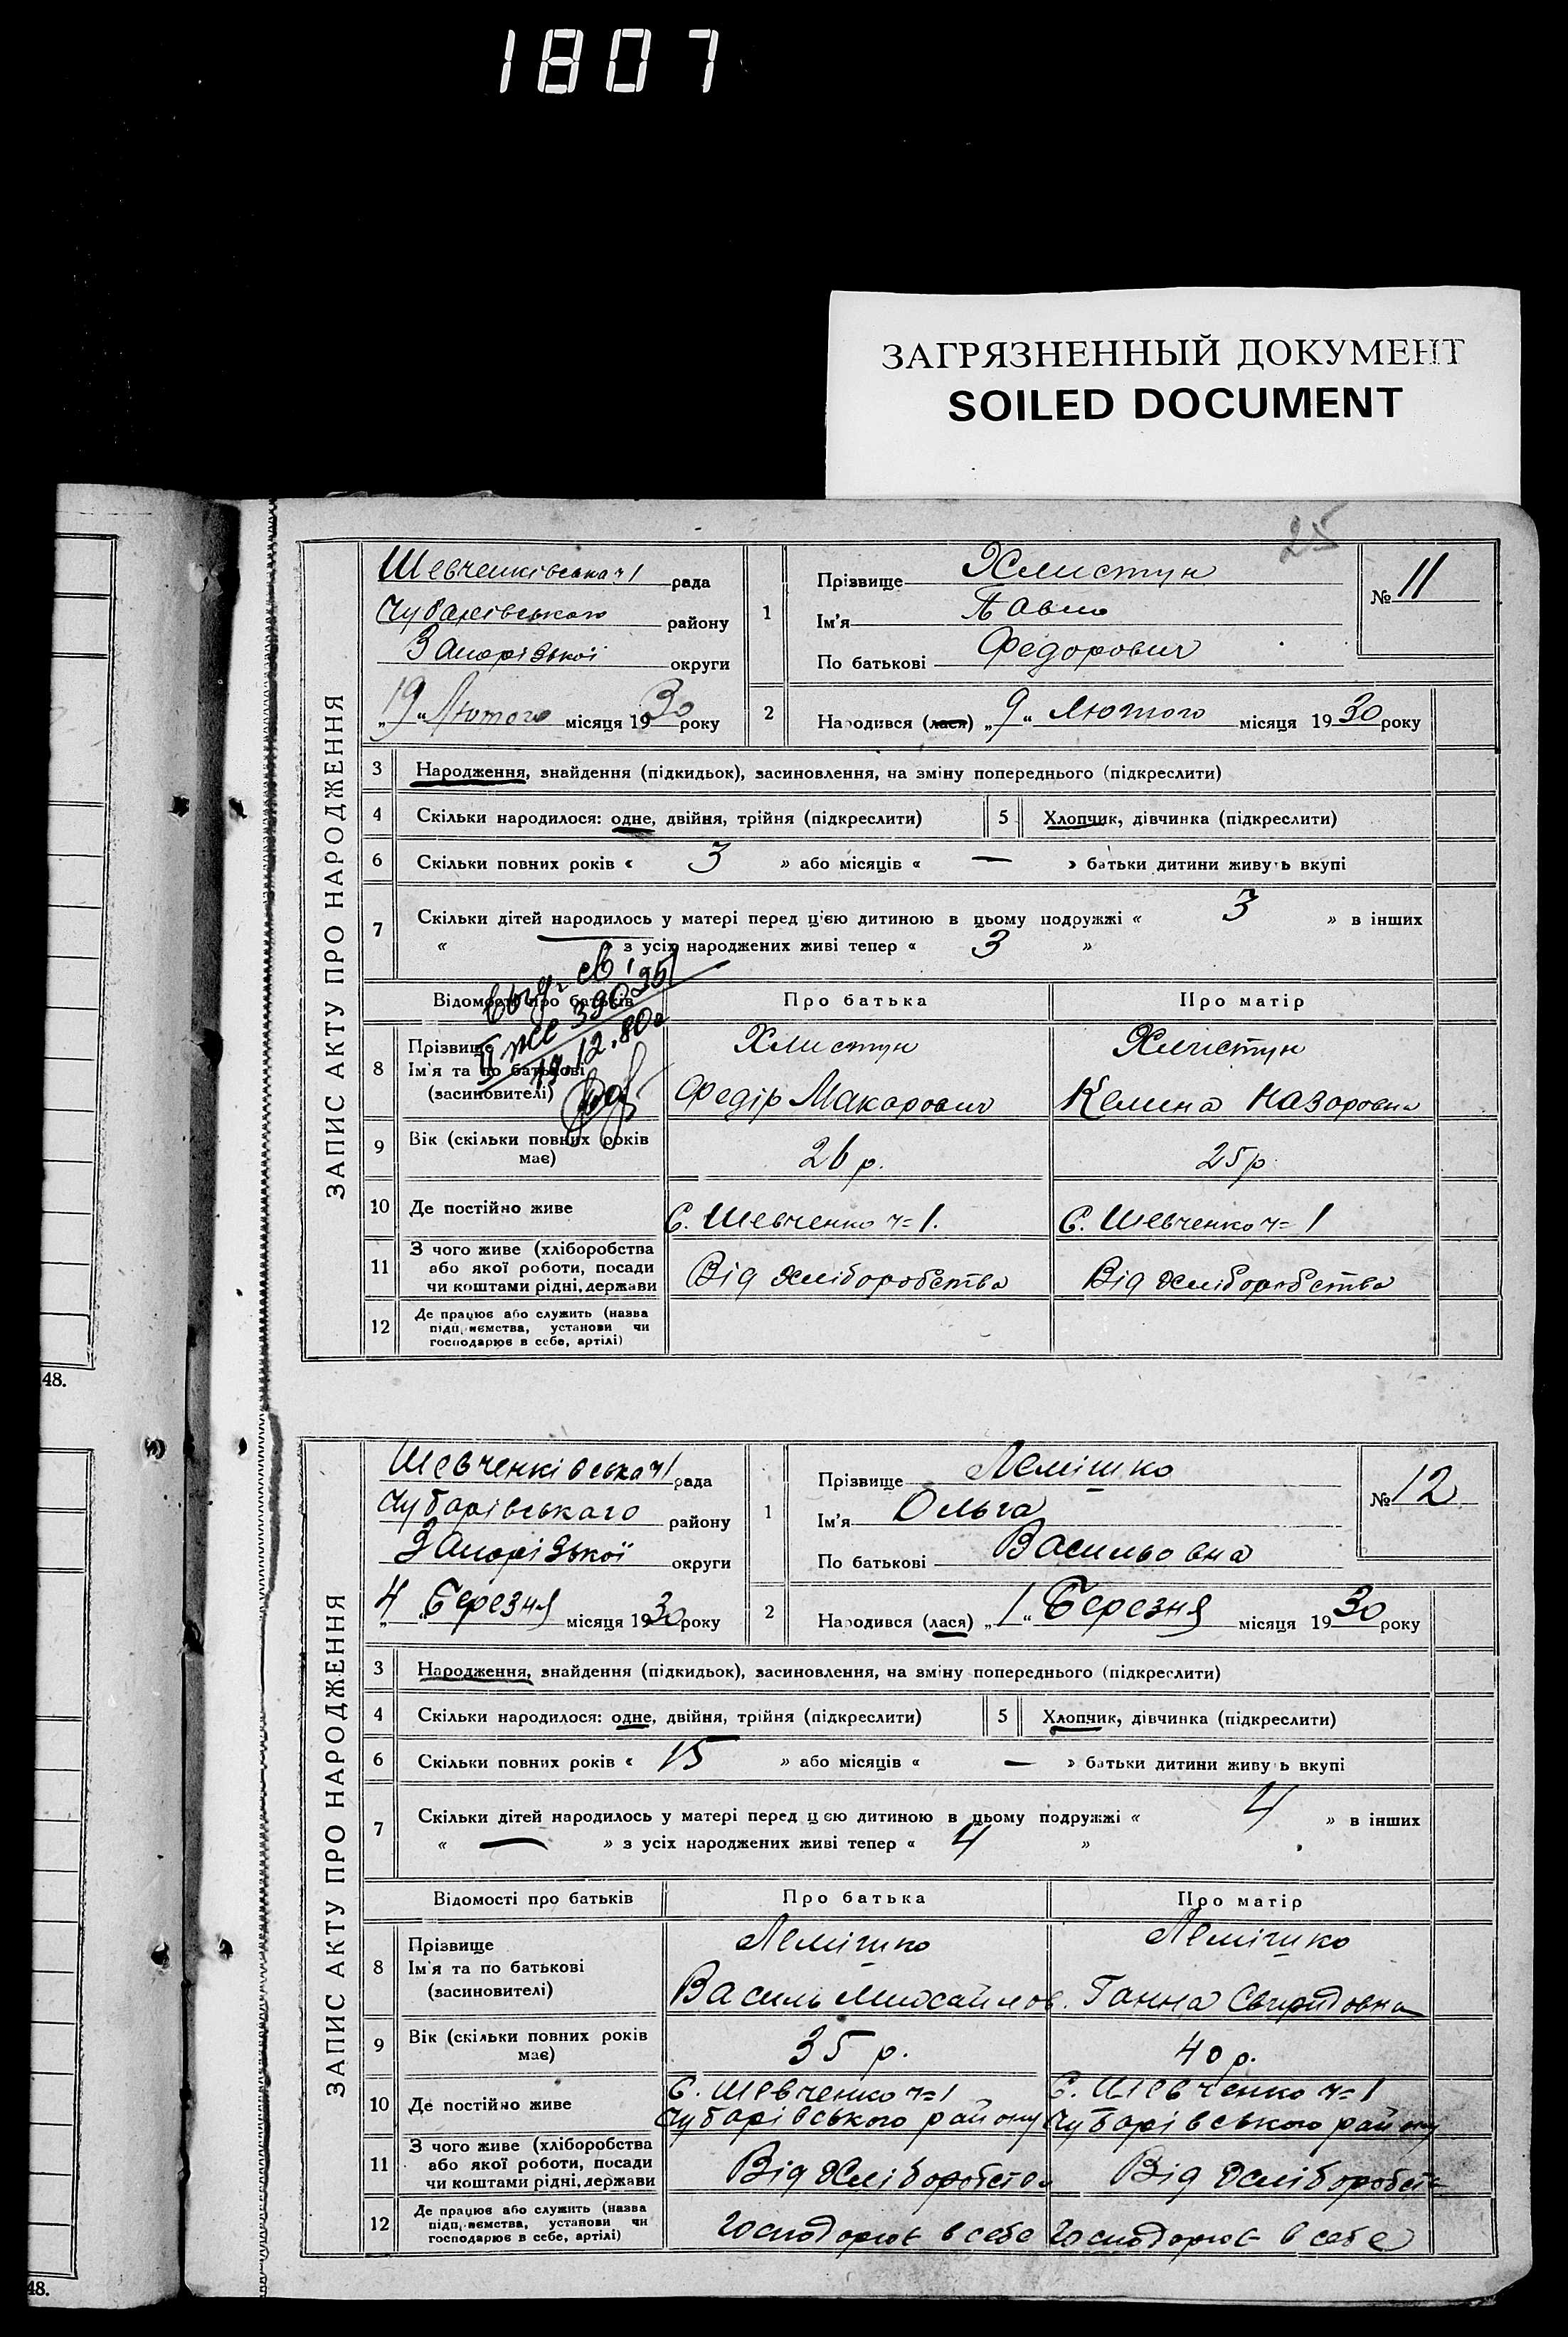 1807
ЗАГРЯЗНЕННЫЙ ДОКУМЕНТ
SOILED DOCUMENT
25
ЗАПИС АКТУ ПРО НАРОДЖЕННЯ
Шевченківська ч1 рада
Чубарівського району
Запорізької округи
„19“ Лютого місяця 1930 року
1
Прізвище Хлистун
Ім'я Павло
По батькові Федорович
№ 11
2 Народився (лася) „9“ Лютого місяця 1930 року
3 Народження, знайдення (підкидьок), засиновлення, на зміну попереднього (підкреслити)
4 Скільки народилося: одне, двійня, трійня (підкреслити) 5 Хлопчик, дівчинка (підкреслити)
6 Скільки повних років « 3 » або місяців « — » батьки дитини живуть вкупі
7 Скільки дітей народилось у матері перед цією дитиною в цьому подружжі « 3 » в інших
« — з усіх народжених живі тепер « 3 »
Відомості про батьків Про батька Про матір
19.12.80
8 Прізвище
Ім'я та по батькові
(засиновителі)
Хлистун
Федір Макарович
Хлистун
Келина Назаровна
9 Вік (скільки повних років
має)
26 р.
25 р
10 Де постійно живе
С. Шевченко ч=1.
С. Шевченко ч=1
11 З чого живе (хліборобства
або якої роботи, посади
чи коштами рідні, держави
Від хліборобства
Від хліборобства
12 Де працює або служить (назва
підприємства, установи чи
господарює в себе, артілі)
48.
ЗАПИС АКТУ ПРО НАРОДЖЕННЯ
Шевченківська ч1 рада
Чубарівського району
Запорізької округи
4 „ Березня місяця 1930 року
1
Прізвище Лемішко
Ім'я Ольга
По батькові Васильовна
№ 12
2 Народився (лася) „1“ Березня місяця 1930 року
3 Народження, знайдення (підкидьок), засиновлення, на зміну попереднього (підкреслити)
4 Скільки народилося: одне, двійня, трійня (підкреслити) 5 Хлопчик, дівчинка (підкреслити)
6 Скільки повних років « 15 » або місяців « — » батьки дитини живуть вкупі
7 Скільки дітей народилось у матері перед цією дитиною в цьому подружжі « 4 » в інших
« — » з усіх народжених живі тепер « 4 »
Відомості про батьків Про батька Про матір
8 Прізвище
Ім'я та по батькові
(засиновителі)
Лемішко
Василь Михайлов.
Лемішко
Ганна Свиридовна
9 Вік (скільки повних років
має)
35 р.
40 р.
10 Де постійно живе
С. Шевченко ч=1
Чубарівського району
С. Шевченко ч=1
Чубарівського району
11 З чого живе (хліборобства
або якої роботи, посади
чи коштами рідні, держави
Від Хліборобства
Від Хліборобств
12 Де працює або служить (назва
підприємства, установи чи
господарює в себе, артілі)
Господорює в себе
Господорює в себе
48.